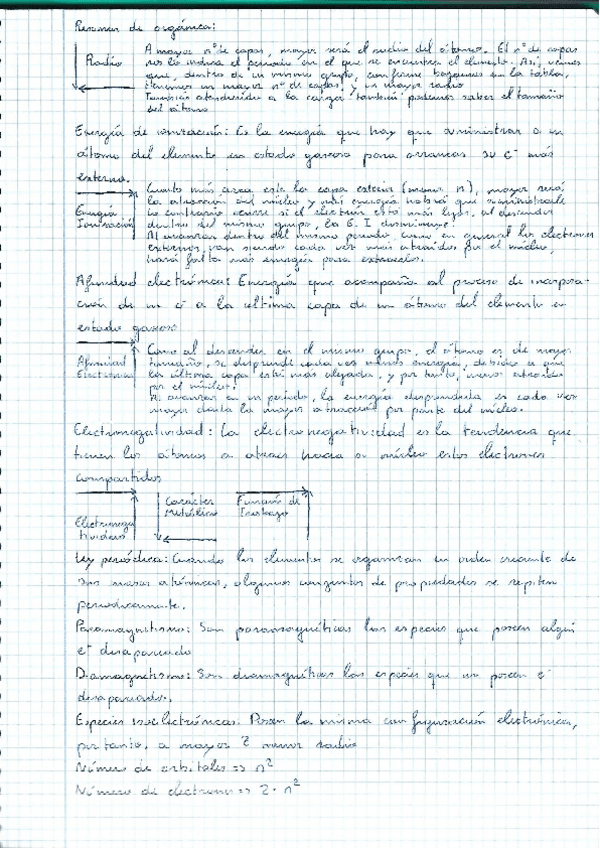 Resumen de orgánica:
Radio
A mayor nº de capas, mayor será el radio del átomo. El nº de capas
nos lo indica el periodo en el que se encuentra el elemento. Así, vemos
que, dentro de un mismo grupo, conforme bajamos en la tabla,
tenemos un mayor nº de capas, y un mayor radio
También atendiendo a la carga también podemos saber el tamaño
del átomo
Energía de ionización: Es la energía que hay que suministrar a un
átomo del elemento en estado gaseoso para arrancar su e- más
externo.
Energía
Ionización
Cuanto más cerca esté la capa exterior (menor n), mayor será
la atracción del núcleo y más energía habrá que suministrarle
Lo contrario ocurre si el electrón está más lejos, al descender
dentro del mismo grupo, la E. I disminuye.
Al avanzar dentro del mismo periodo como en general los electrones
externos van siendo cada vez más atraídos por el núcleo,
hará falta más energía para extraerlos.
Afinidad electrónica: Energía que acompaña al proceso de incorpora-
ción de un e- a la última capa de un átomo del elemento en
estado gaseoso
Afinidad
Electrónica
Como al descender en el mismo grupo, el átomo es de mayor
tamaño, se desprende cada vez menos energía, debido a que
la última capa está más alejada, y por tanto, menos atraída
por el núcleo.
Al avanzar en un periodo, la energía desprendida es cada vez
mayor dada la mayor atracción por parte del núcleo.
Electronegatividad: La electronegatividad es la tendencia que
tienen los átomos a atraer hacia su núcleo estos electrones
compartidos
Electronega
tividad
Carácter
Metálico
Función de
Trabajo
Ley periódica: Cuando los elementos se organizan en orden creciente de
sus masas atómicas, algunos conjuntos de propiedades se repiten
periódicamente.
Paramagnetismo: Son paramagnéticas las especies que poseen algún
e- desapareado
Diamagnetismo: Son diamagnéticas las especies que no poseen e-
desapareados.
Especies isoelectrónicas: Poseen la misma configuración electrónica,
por tanto, a mayor Z menor radio
Número de orbitales => n²
Número de electrones => 2·n²